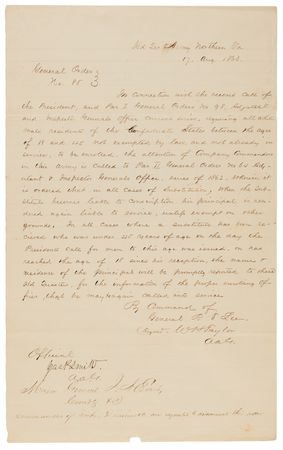 Hd Qrs Army Northern Va
17. Aug. 1863.
General Orders
No. 85
In connection with the second call of
the President, and Par I General Orders No 98, Adjutant
and Inspector Generals office current series, requiring all white
male residents of the Confederate States between the ages
of 18 and 45 not exempted by law and not already in
service, to be enrolled, the attention of Company Commanders
in this Army is called to Par II General Orders No 64 Adju-
tant & Inspector Generals Office, series of 1862, wherein it
is ordered that in all Cases of Substitution, when the Sub-
stitute becomes liable to conscription his principal is ren-
dered again liable to service, unless exempt on other
grounds. In all cases where a Substitute has been re-
ceived who was under 45 years of age on the day the
Presidents call for men to this age was issued, or has
reached the age of 18 since his reception, the names &
residence of the principal will be promptly reported to these
Hd Quarters, for the information of the proper enrolling Of-
ficer, that he may again called into service.
By Command of
General R E Lee.
(Signed) W H Taylor
AAG.
Official
Jas P Smith
AAG.
Major General J A Early
Comdg
commanders of